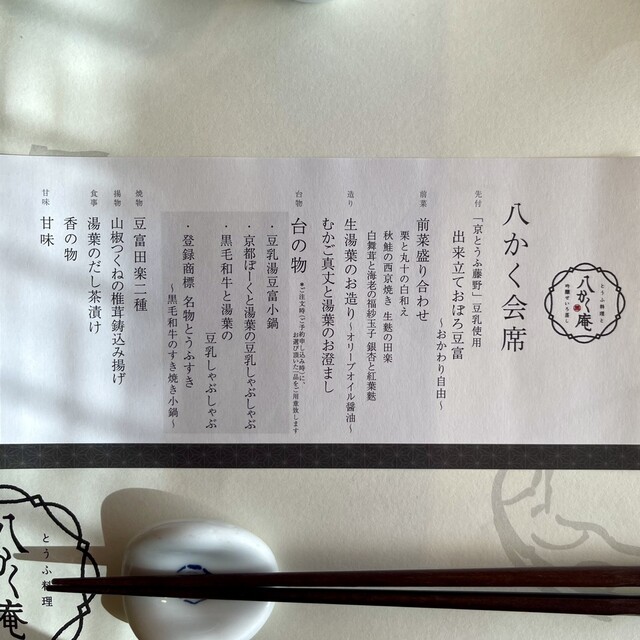 とうふ料理と
八かく庵
吟醸せいろ蒸し
八かく会席
先付
「京とうふ藤野」豆乳使用
出来立ておぼろ豆富
～おかわり自由～
前菜
前菜盛り合わせ
栗と丸十の白和え
秋鮭の西京焼き 生麩の田楽
白舞茸と海老の福紗玉子 銀杏と紅葉麩
造り
生湯葉のお造り～オリーブオイル醤油～
むかご真丈と湯葉のお澄まし
台物
台の物
●ご注文時(ご予約申し込み時)に、
お選び頂いた一品をご用意致します
・豆乳湯豆富小鍋
・京都ぽーくと湯葉の豆乳しゃぶしゃぶ
・黒毛和牛と湯葉の
豆乳しゃぶしゃぶ
・登録商標 名物とうふすき
～黒毛和牛のすき焼き小鍋～
焼物
豆富田楽二種
揚物
山椒つくねの椎茸鋳込み揚げ
食事
湯葉のだし茶漬け
香の物
甘味
甘味
とうふ料理
八かく庵